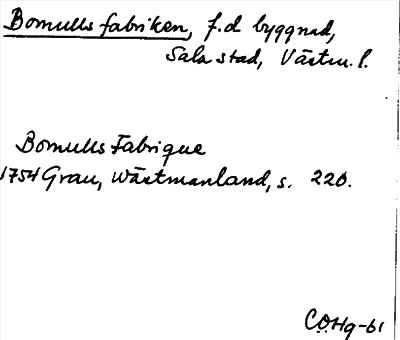 Bomullsfabriken, f.d. byggnad,
Sala stad, Västm. l.
Bomulls Fabrique
1754 Grau, Wästmanland, s. 220.
C.O.Hg-61